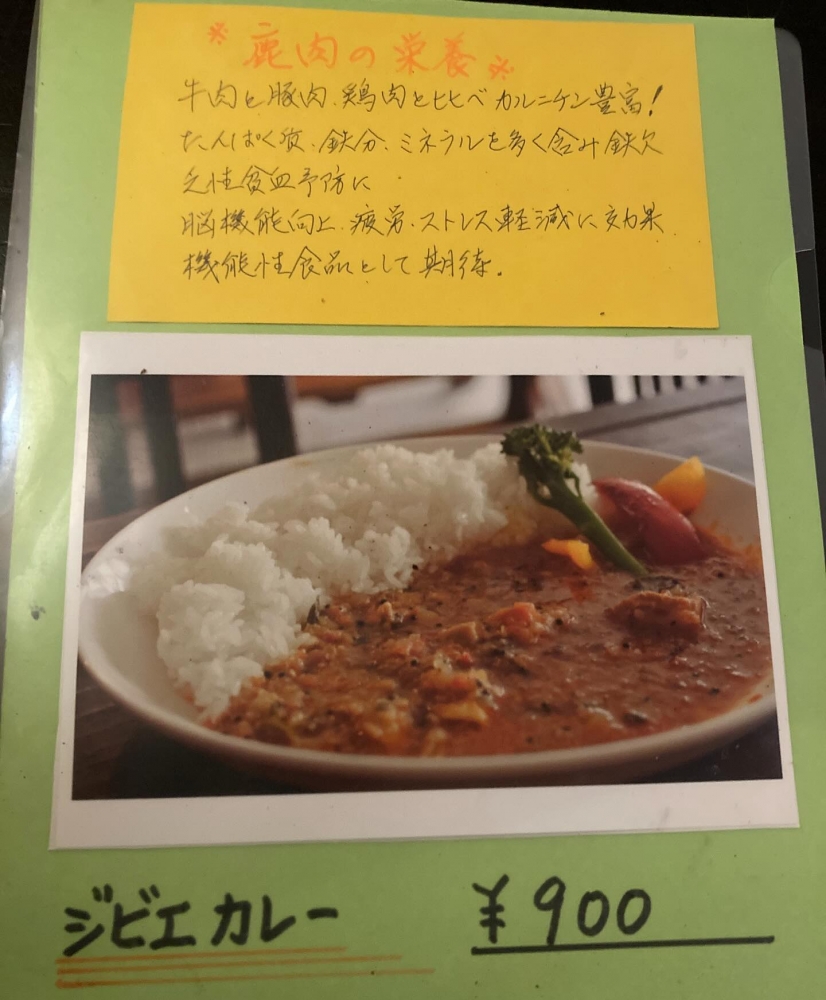 ※ 鹿肉の栄養 ※
牛肉と豚肉、鶏肉と比べカルニチン豊富!
たんぱく質、鉄分、ミネラルを多く含み鉄欠
乏性貧血予防に
脳機能向上、疲労、ストレス軽減に効果
機能性食品として期待。
ジビエカレー ¥900